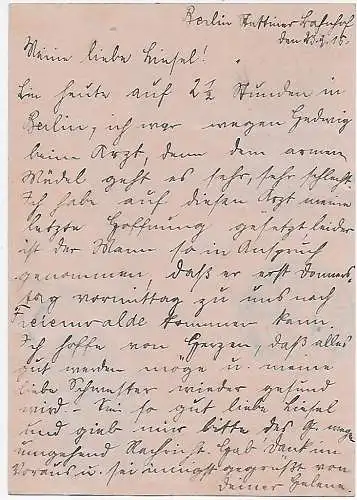 Berlin Stettiner Bahnhof
den 23.9.15.
Meine liebe Liesel!
Bin heute auf 2½ Stunden in
Berlin, ich war wegen Hedwig
beim Arzt, denn dem armen
Mädel geht es sehr, sehr schlecht.
Ich habe auf diesen Arzt meine
letzte Hoffnung gesetzt, leider
ist der Mann so in Anspruch
genommen, daß er erst Donners-
tag vormittag zu uns nach
Freienwalde kommen kann.
Ich hoffe von Herzen, daß alles
gut werden möge u. meine
liebe Schwester wieder gesund
wird. – Sei so gut liebe Liesel
und gieb mir bitte des G. wegen
umgehend Nachricht. Hab' Dank im
Voraus u. sei innigst gegrüßt von
deiner Helene